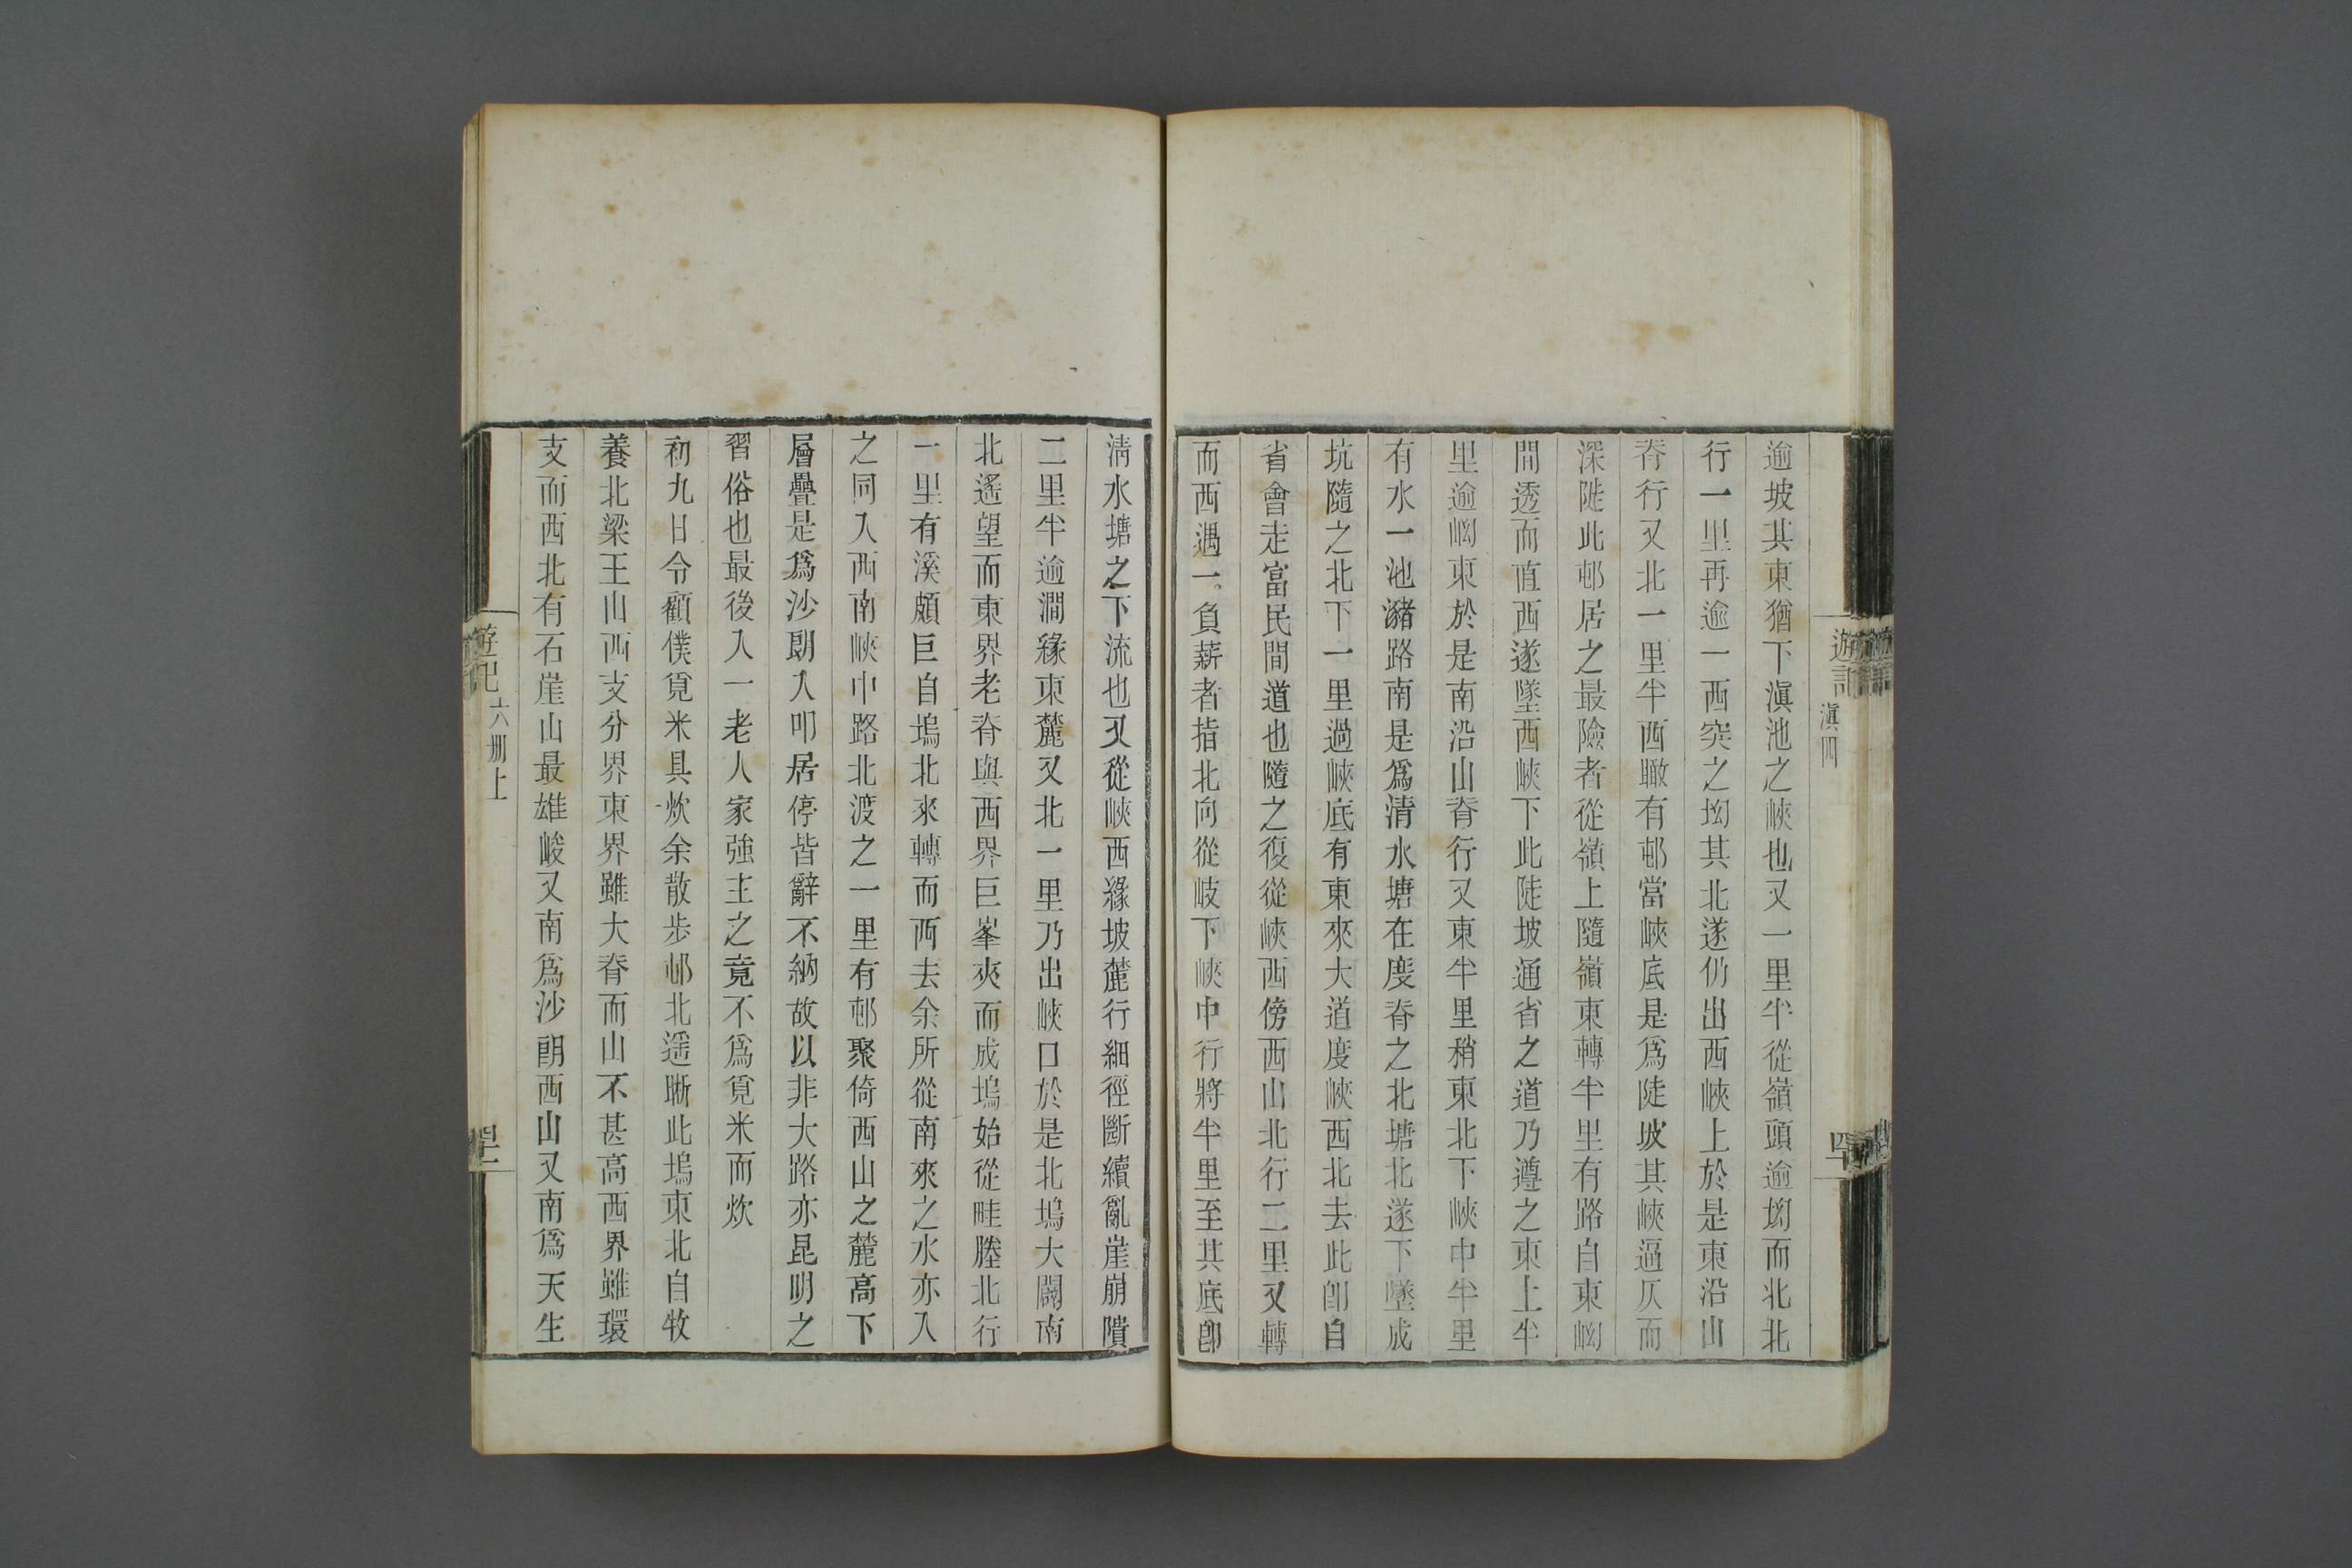 遊記
滇四
四十
逾坡其東猶下滇池之峽也又一里半從嶺頭逾坳而北北
行一里再逾一西突之坳其北遂仍出西峽上於是東沿山
脊行又北一里半西瞰有邨當峽底是爲陡坡其峽逼仄而
深陡此邨居之最險者從嶺上隨嶺東轉半里有路自東㘭
間透而直西遂墜西峽下此陡坡通省之道乃遵之東上半
里逾㘭東於是南沿山脊行又東半里稍東北下峽中半里
有水一池瀦路南是爲清水塘在度脊之北塘北遂下墜成
坑隨之北下一里過峽底有東來大道度峽西北去此卽自
省會走富民間道也隨之復從峽西傍西山北行二里又轉
而西遇一負薪者指北向從岐下峽中行將半里至其底卽
清水塘之下流也又從峽西緣坡麓行細徑斷續亂崖崩隤
二里半逾澗緣東麓又北一里乃出峽口於是北塢大闢南
北遙望而東界老脊與西界巨峯夾而成塢始從畦塍北行
一里有溪頗巨自塢北來轉而西去余所從南來之水亦入
之同入西南峽中路北渡之一里有邨聚倚西山之麓高下
層疊是爲沙朗入叩居停皆辭不納故以非大路亦昆明之
習俗也最後入一老人家強主之竟不爲覓米而炊
初九日令顧僕覓米具炊余散步邨北遥晰此塢東北自牧
養北梁王山西支分界東界雖大脊而山不甚高西界雖環
支而西北有石崖山最雄峻又南爲沙朗西山又南爲天生
遊記
六册上